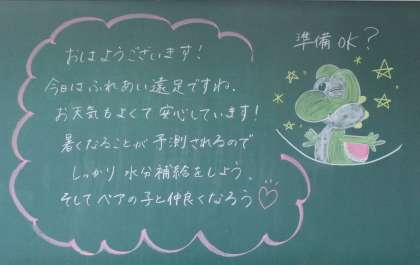 おはようございます!
今日はふれあい遠足ですね。
お天気もよくて安心しています!
暑くなることが予測されるので
しっかり水分補給をしよう。
そしてペアの子と仲良くなろう♡
準備OK?